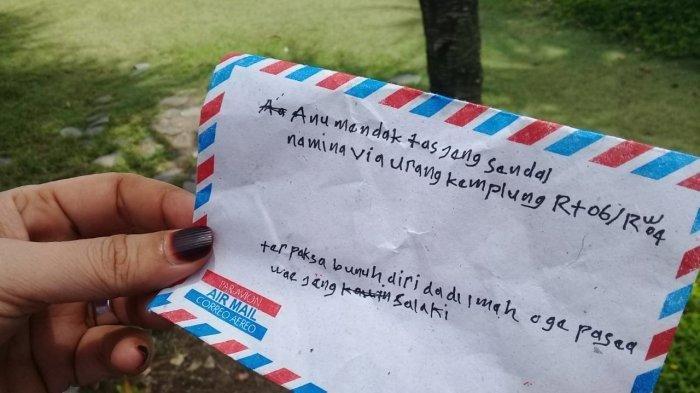 Anu mendak tas jeng sendal
namina Via urang kemplung Rt06/RW04
ter paksa bunuh diri da di imah oge pasea
wae jeng salaki
PAR AVION
AIR MAIL
CORREO AEREO